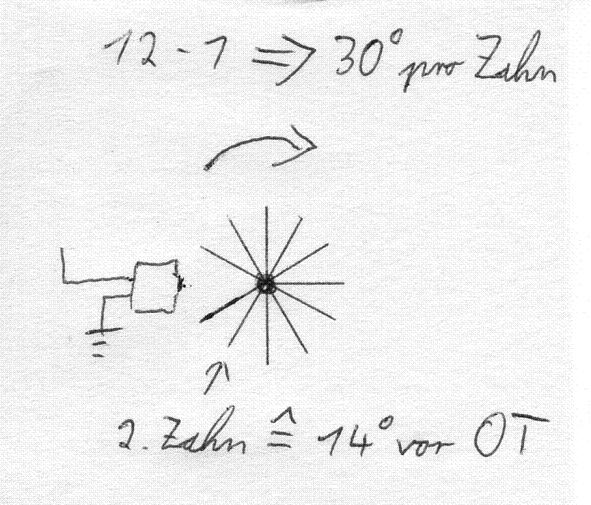 12 - 1 ⇒ 30° pro Zahn
2. Zahn ≙ 14° vor OT